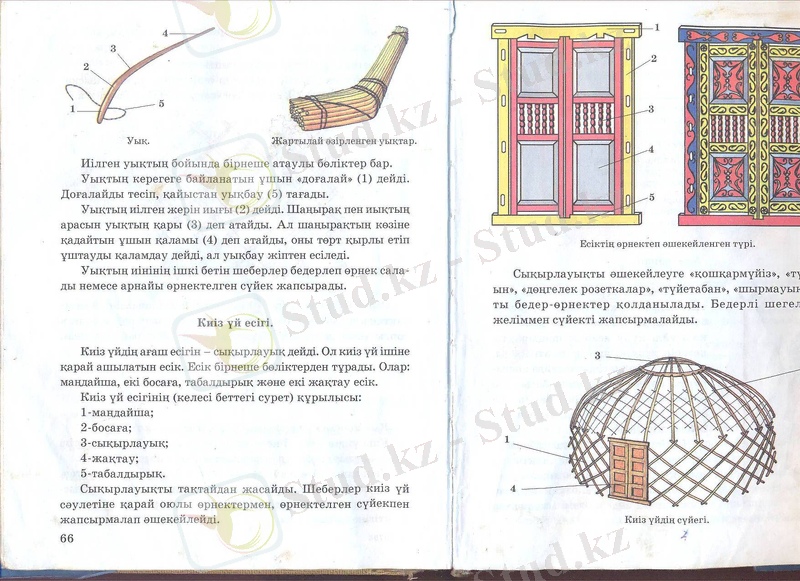 4
3
2
1
5
Уык.
Жартылай әзірленген уықтар.
Иілген уықтың бойында бірнеше атаулы бөліктер бар.
Уықтың керегеге байланатын ұшын «доғалай» (1) дейді.
Доғалайды тесіп, қайыстан уықбау (5) тағады.
Уықтың иілген жерін иығы (2) дейді. Шаңырақ пен иықтың
арасын уықтың қары (3) деп атайды. Ал шаңырақтың көзіне
қадайтын ұшын қаламы (4) деп атайды, оны төрт қырлы етіп
ұштауды қаламдау дейді, ал уықбау жіптен есіледі.
Уықтың иінінің ішкі бетін шеберлер бедерлеп өрнек сала-
ды немесе арнайы өрнектелген сүйек жапсырады.
Киіз үй есігі.
Киіз үйдің ағаш есігін – сықырлауық дейді. Ол киіз үй ішіне
қарай ашылатын есік. Есік бірнеше бөліктерден тұрады. Олар:
маңдайша, екі босаға, табалдырық және екі жақтау есік.
Киіз үй есігінің (келесі беттегі сурет) құрылысы:
1-маңдайша;
2-босаға;
3-сықырлауық;
4-жақтау;
5-табалдырық.
Сықырлауықты тақтайдан жасайды. Шеберлер киіз үй
сәулетіне қарай оюлы өрнектермен, өрнектелген сүйекпен
жапсырмалап әшекейлейді.
66
1
2
3
4
5
Есіктің өрнектеп әшекейленген түрі.
Сықырлауықты әшекейлеуге «қошқармүйіз», «тү
ын», «дөңгелек розеткалар», «түйетабан», «шырмауы
ты бедер-өрнектер қолданылады. Бедерлі шегел
желіммен сүйекті жапсырмалайды.
3
1
4
Киіз үйдің сүйегі.
2
Stud.kz - Stud.kz - Stud.kz
Stud.kz - Stud.kz - Stud.kz